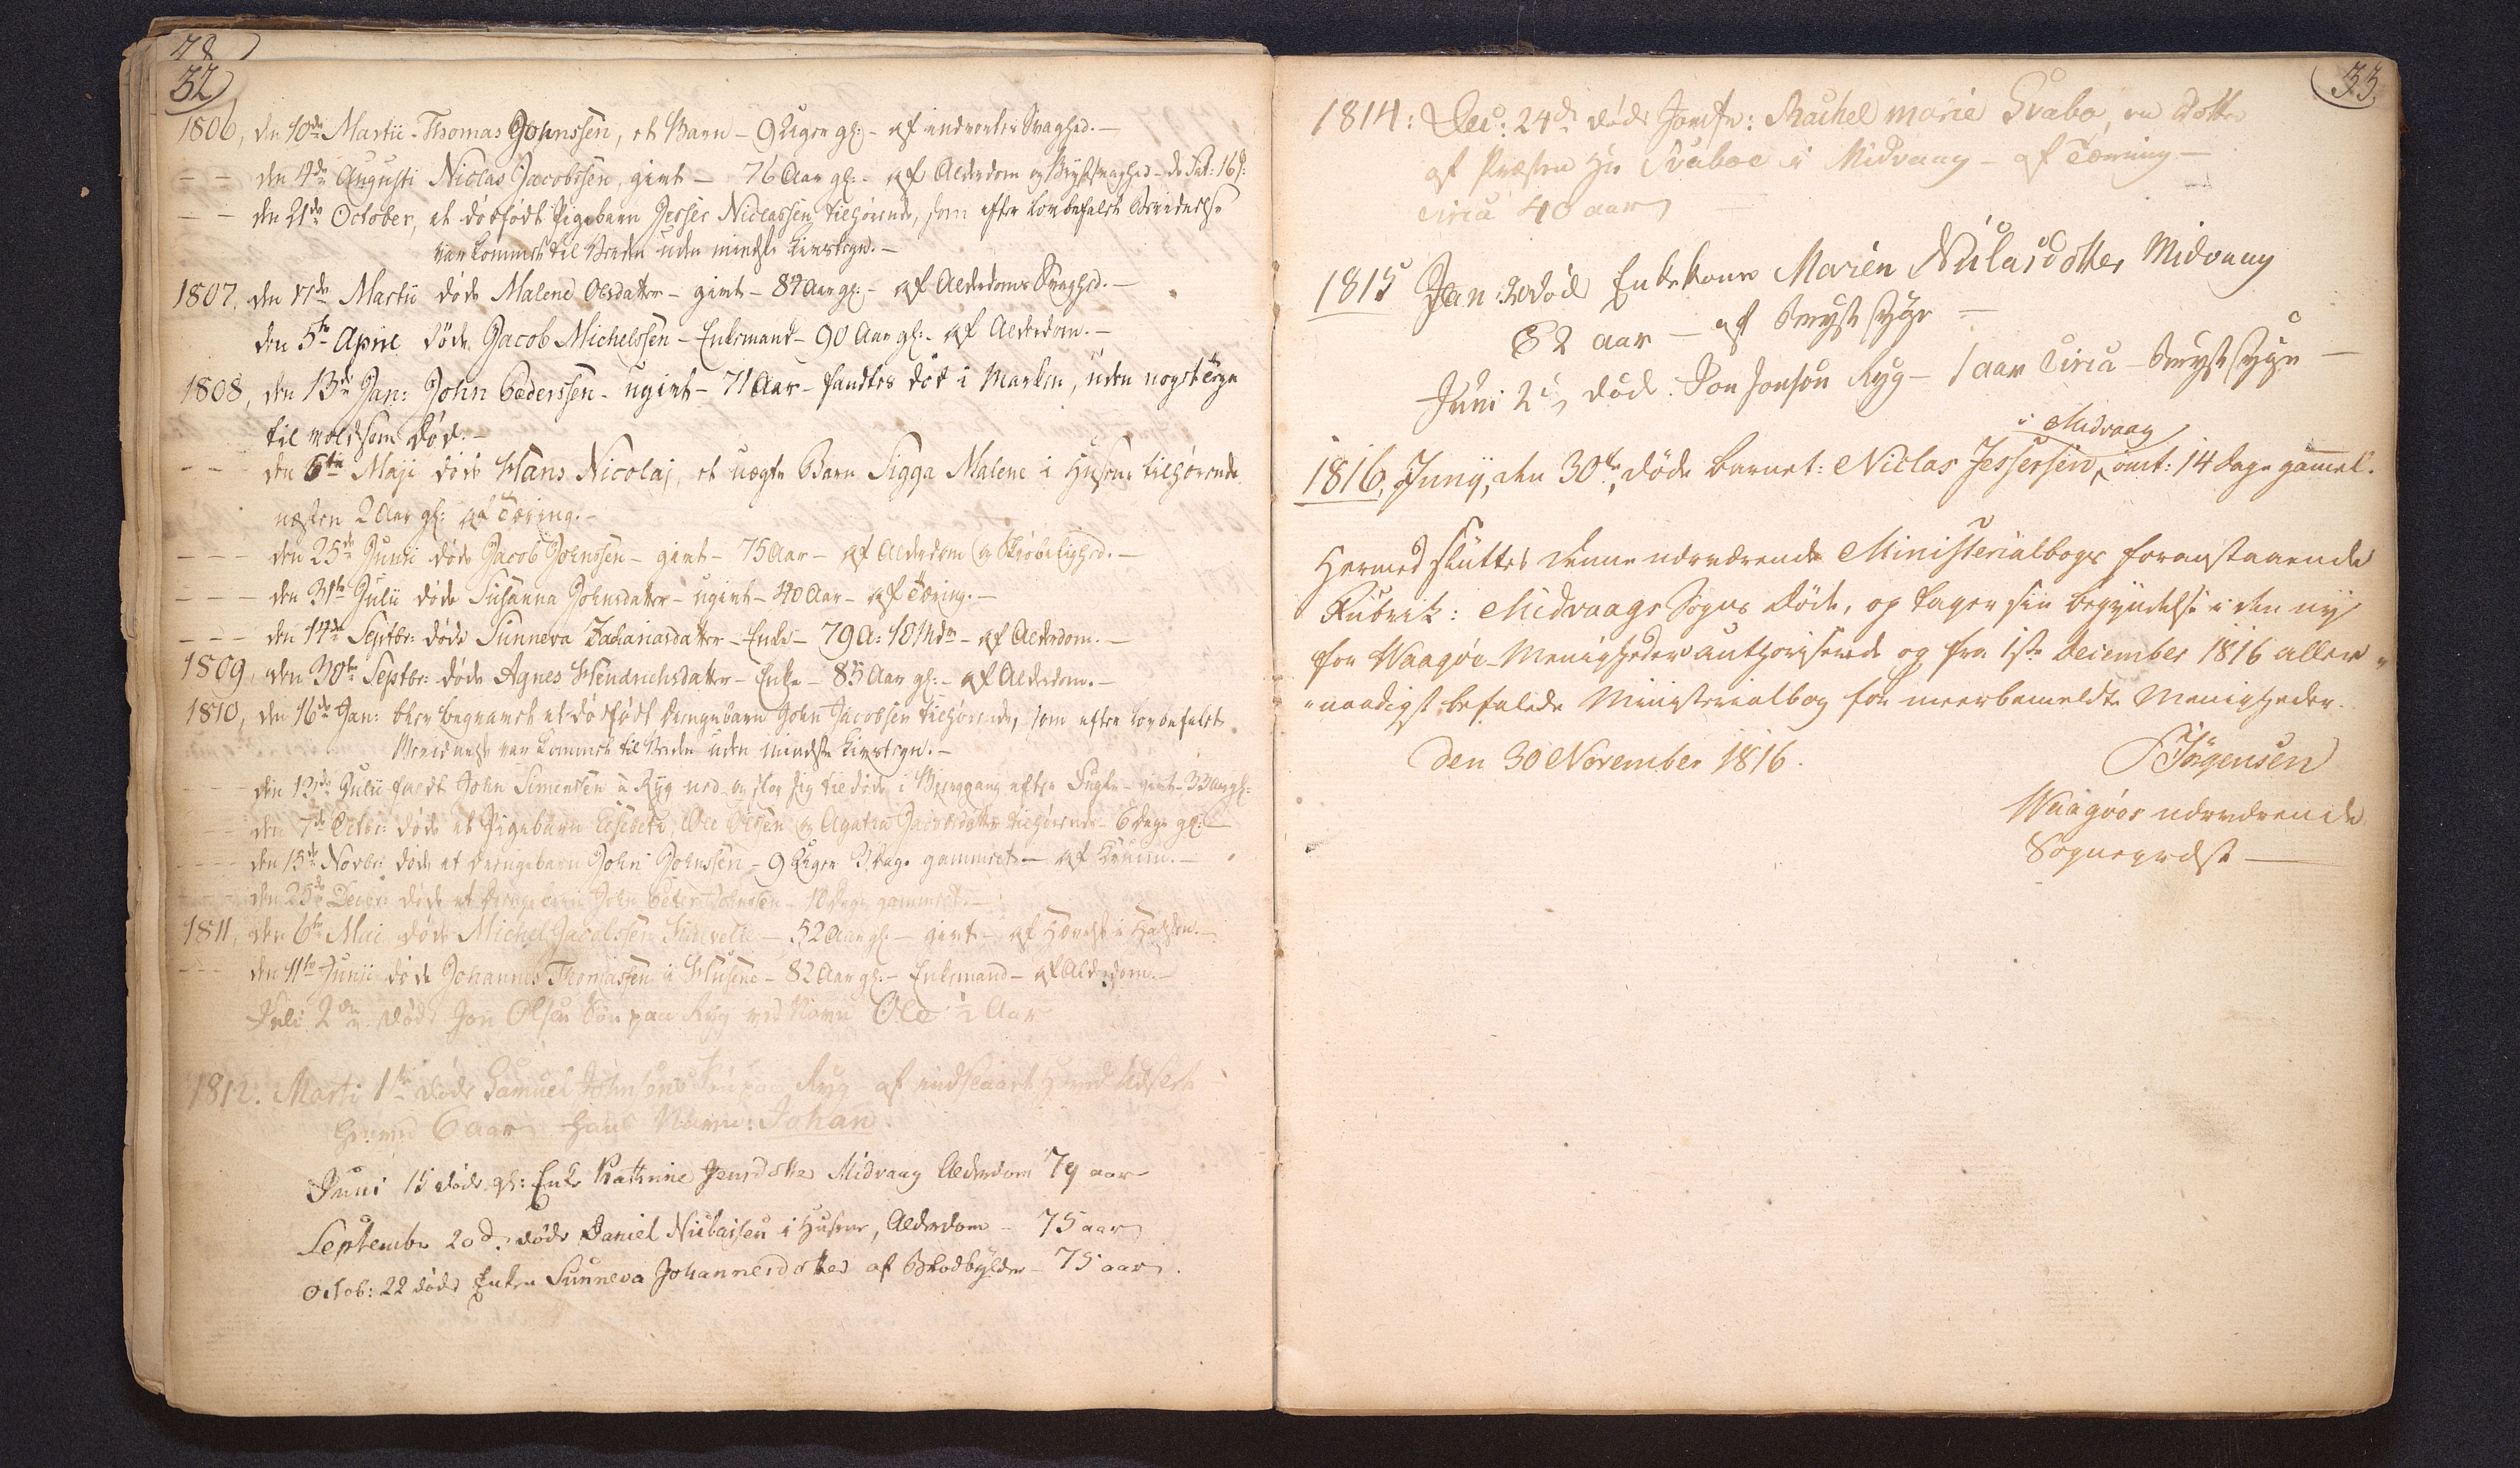 78
32
1806, den 10de Martii Thomas Johnssen, et Barn - 9 Uger gl: - af indvortes Svaghed. -
- - den 4de Augusti Niclas Jacobssen, givt - 76 Aar gl: - af Alderdom og Brystsvaghed -
- - den 21de October, et dødfødt Pigebarn Jesser Niclassen tilhørende, som efter lovbefalet Beviidnelse
var kommet til Verden uden mindste Livstegn. -
1807, den 17de Martii døde Malene Olsdatter - givt - 87 Aar gl: - af Alderdoms Svaghed. -
den 5te April døde Jacob Michelssen - Enkemand - 90 Aar gl: - af Alderdom. -
1808, den 13de Jan: John Pederssen - ugivt - 71 Aar - fandtes død i Marken, uden noget Tegn
til voldsom Død. -
- - den 6te Maji døde Hans Nicolaj, et uægte Barn Sigga Malene i Husene tilhørende
næsten 2 Aar gl: af Tæring. -
- - - den 25de Junii døde Jacob Johnssen - givt - 75 Aar - af Alderdom og Skrøbelighed. -
- - - den 31te Julii døde Susanna Johnsdatter - ugivt - 40 Aar - af Tæring. -
- - - den 14de Septbr: døde Sunneva Zachariasdatter - Enke - 79 A: 10 Mdr - af Alderdom. -
1809, den 30te Septbr: døde Agnes Hendrichsdatter - Enke - 85 Aar gl: - af Alderdom. -
1810, den 16de Jan: blev begravet et dødfødt Drengebarn John Jacobsen tilhørende, som efter lovbefalet
Beviidnelse var kommet til Verden uden mindste Livstegn. -
- - - den 13de Julii faldt John Simenssen i Ryg ned og slog sig til døde i Bierggang efter Fugle - givt - 33 Aar gl:
- - - den 7de Octbr: døde et Pigebarn Elsebeth, Ole Olssen og Agatha Jacobsdatter tilhørende - 6 Dage gl: -
- - - den 15de Novbr: døde et Drengebarn John Johnssen - 9 Uger 3 Dage gammelt - af -
den 25de Decbr: døde et Drengebarn John Peter Johnssen - 10 Dage gammelt. -
1811, den 6te Mai døde Michel Jacobssen - 52 Aar gl: - givt - af Hævelse i Halsen. -
- - - den 11te Junii døde Johannes Thomassen i Husene - 82 Aar gl: - Enkemand - af Alderdom. -
Juli 2den døde Jon Olsen Søn paa Ryg ved Navn Ole ½ Aar
1812. Marti 1ste døde Samuel Johnsens Søn paa Ryg af
6 aar hans Navn: Johan.
Juni 15 døde gl: Enke Kathrine Jensdotter Midvaag Alderdom 79 aar
Septembr 20d: døde Daniel Niclassen i Husene, Alderdom - 75 aar
Octob: 22 døde Enken Sunneva Johannesdotter af Blodbylder - 75 aar.
33
1814: Dec: 24de døde Jomfr: Rachel marie Svabo, en Dotter
af Præsten Hr Svaboe i Midvaag - af Tæring -
circa 40 aar
1815 Jan: 20 døde Enkekone Marien Niclasdotter Midvaag
82 aar - af Brystsyge -
Juni 2d, døde Jon Jonsøn Ryg - 1 aar circa - Brystsyge -
i Midvaag
1816, Junij, den 30te, døde barnet: Niclas Jessersen, omt: 14 dage gammel.
Hermed sluttes denne nærværende Ministerialbogs foranstaaende
Rubrik: Midvaags Sogns Døde, og tager sin begyndelse i den nÿ
for Waagøe-Menigheder authoriserede og fra 1ste December 1816 aller„
„naadigst befalede Ministerialbog for meerbemeldte Menigheder.
Den 30 November 1816.
Jörgensen
Waagöes nærværende
Sognepræst -